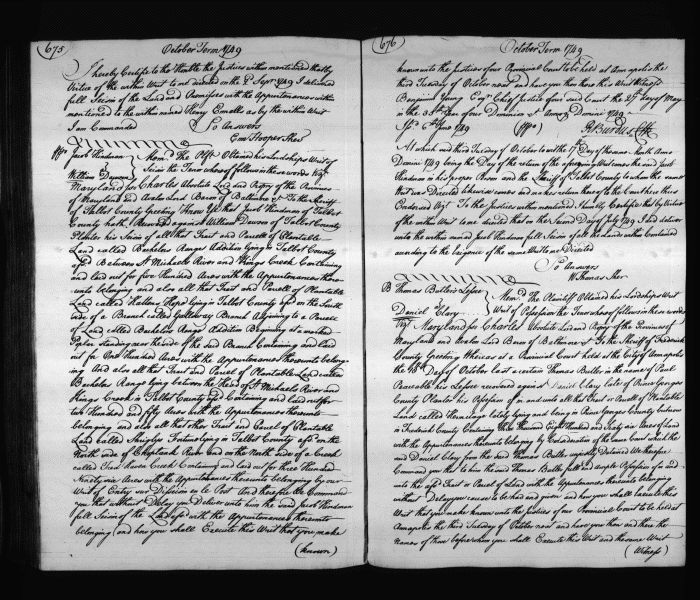 675
October Term 1749
I hereby Certifie to the Honble the Justices within mentioned that by
Virtue of the within Writ to me directed on the 2d Septr 1749 I delivered
full Seisin of the Land and Premisses with the Appurtenances within
mentioned to the within named Henry Ennalls as by the within Writ
I am Commanded So Answers
Em Hooper Sher
Jacob Hindman
William Dawson
Memd. The Plft Obtained his Lordships Writ of
Seisin the Tenor whereof follows in these words Vizt
Maryland ss Charles Absolute Lord and Propry of the Provinces
of Maryland and Avalon Lord Baron of Baltimore &c To the Sheriff
of Talbot County Greeting Know Yee that Jacob Hindman of Talbot
County hath Recovered against William Dawson of Talbot County
Planter his Seisin of all that Tract and Parcell of Plantable
Land called Bachelors Range Addition lying in Talbot County
Between St Michaels River and Kings Creek Containing
and laid out for five Hundred Acres with the Appurtenances there
unto belonging and also all that Tract and Parcell of Plantable
Land called Hope lying in Talbot County afd on the South
side of a Branch called Galloway Branch Adjoining to a Parcell
of Land called Bachelors Range Addition Beginning at a marked
Poplar standing near the side of the said Branch Containing and laid
out for One Hundred Acres with the Appurtenances thereunto belong-
ing And also all that Tract and Parcell of Plantable Land called
Bachelors Range lying between the Head of St Michaels River and
Kings Creek in Talbot County afd Containing and laid out for
two Hundred and fifty Acres with the Appurtenances thereunto
belonging and also all that other Tract and Parcel of Plantable
Land called Fortune lying in Talbot County afd on the
North side of Choptank River and on the North side of a Creek
called Creek Containing and laid out for three Hundred
Ninety six Acres with the Appurtenances thereunto belonging by our
Writ of Entry sur Disseisin en le Post And therefore We Command
you that without Delay you Deliver unto him the said Jacob Hindman
full Seisin of the Land afd with the Appurtenances thereunto
belonging and how you shall Execute this Writ that you make
(known)
676
October Term 1749
known unto the Justices of our Provincial Court to be held at Annapolis the
third Tuesday of October next and have you then there this Writ Witness
Benjamin Young Esqr Chief Justice of our said Court the 27th day of May
in the 35th Year of our Dominion &c Annoq Domini 1749
June 1749 R Burdus Clk
At which said third Tuesday of October to wit the 17th Day of the same Month Anno
Domini 1749 being the Day of the return of the aforegoing Writ comes the said Jacob
Hindman in his proper Person and the Sheriff of Talbot County to whom the same
Writ was Directed likewise comes and makes return thereof to the Court here thus
Endorsed Vizt To the Justices within mentioned I humbly Certifie that by Virtue
of the within Writ to me directed that on the Second Day of July 1749 I did deliver
unto the within named Jacob Hindman full Seisin of all the Lands within Contained
according to the Exigence of the same Writ to me Directed
So Answers
Wm Thomas Sher
Thomas Butlers Lessee
Daniel Clary
Memd. The Plaintiff Obtained his Lordships Writ
Writ of Possession the Tenor whereof follows in these words
Vizt Maryland ss Charles Absolute Lord and Propry of the Provinces of
Maryland and Avalon Lord Baron of Baltimore &c To the Sheriff of Frederick
County Greeting Whereas at a Provincial Court held at the City of Annapolis
the 18th Day of October last a certain Thomas Butler in the name of Paul
Peaceable his Lessee recovered against Daniel Clary late of Prince Georges
County Planter his Possession of in and unto all that Tract or Parcell of Plantable
Land called Hermitage lately lying and being in Prince Georges County but now
in Frederick County Containing Three Thousand Eight Hundred and Sixty six Acres of Land
with the Appurtenances thereunto belonging by Consideration of the same Court which the
said Daniel Clary from the said Thomas Butler unjustly Detained We therefore
Command you that to him the said Thomas Butler full and ample Possession of in and
unto the afd Tract or Parcel of Land with the Appurtenances thereunto belonging
without Delay you cause to be had and given and how you shall Execute this
Writ that you make known unto the Justices of our Provincial Court to be held at
Annapolis the third Tuesday of October next and have you then and there the
Names of them before whom you shall Execute this Writ and the same Writ
(Witness)